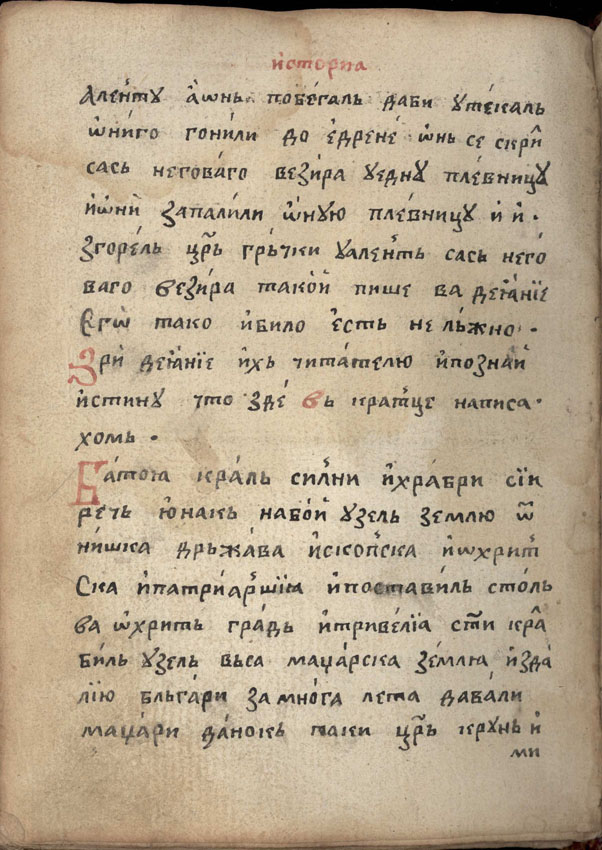 исторіа
алентꙋ аѡнь побегаль даби ꙋтекаль
ѡниго гонили до едрене ѡнь се скрі
сась неговаго везира ꙋеднꙋ плевницꙋ
иѡни запалили ѡнꙋю плевницꙋ и и.
згорель црь гръчки ꙋалентъ сась него
ваго везира такои пише ва деꙗніе
Егѡ тако ибило есть нелъжно.
Зри деꙗніе ихь читателю ипознаи
истинꙋ что зде вь кратце написа.
хомь.
Батоꙗ краль силни ихрабри сіи
речь юнакь набои ꙋзель землю ѿ
нишка дръжава ископска иѡхрит
Ска ипатриаршіꙗ ипоставиль столь
ва ѡхрить градь итривеліа сти кра
биль ꙋзель вьса маџарска землꙗ изда
лію бльгари замнога лета давали
маџари данокь паки црь крꙋнь и
ми